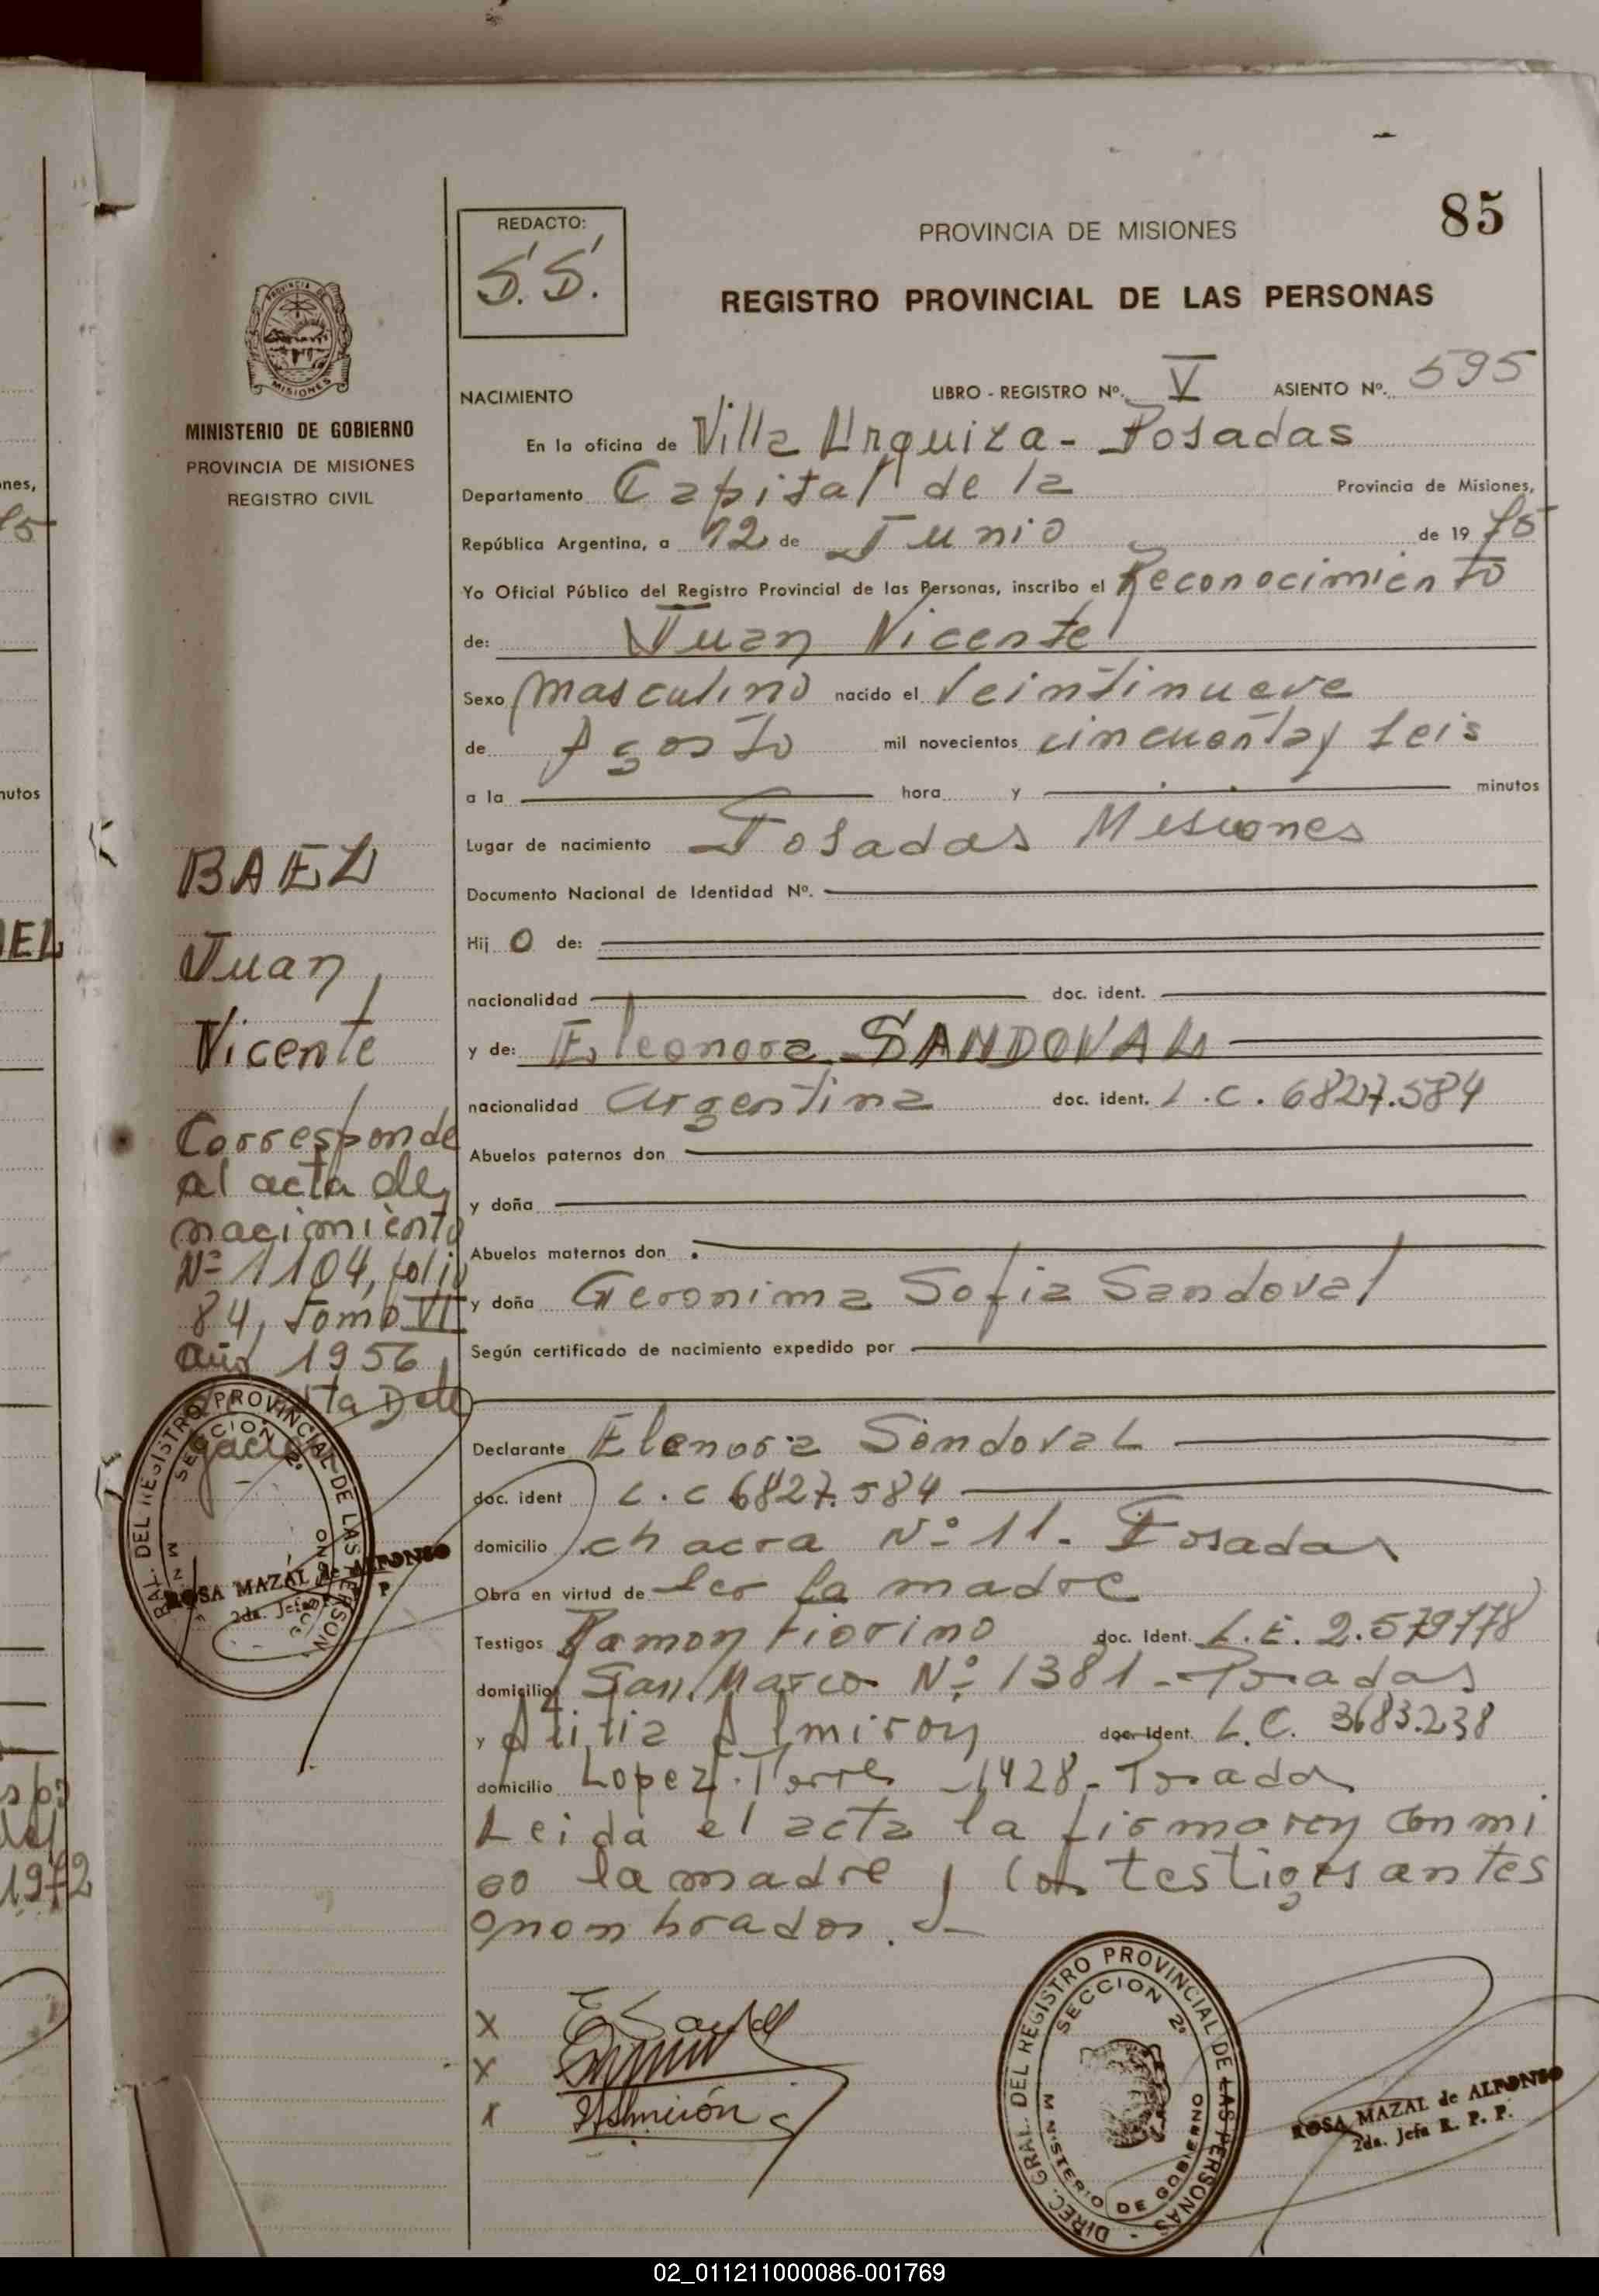 85
REDACTO:
S.S.
PROVINCIA DE MISIONES
REGISTRO PROVINCIAL DE LAS PERSONAS
NACIMIENTO LIBRO - REGISTRO Nº. V ASIENTO Nº. 595
En la oficina de Villa Urquiza - Posadas
Departamento Capital de la Provincia de Misiones,
República Argentina, a 12 de Junio de 19 75
Yo Oficial Público del Registro Provincial de las Personas, inscribo el Reconocimiento
de: Juan Vicente
Sexo masculino nacido el Veintinueve
de Agosto mil novecientos cincuenta y seis
a la hora y minutos
Lugar de nacimiento Posadas Misiones
Documento Nacional de Identidad Nº.
Hij o de:
nacionalidad doc. ident.
y de: Eleonora SANDOVAL
nacionalidad argentina doc. ident. L.C. 6827.584
Abuelos paternos don
y doña
Abuelos maternos don
y doña Geronima Sofia Sandoval
Según certificado de nacimiento expedido por
Declarante Elenora Sandoval
doc. ident L.C 6827.584
domicilio chacra Nº 11. Posadas
Obra en virtud de ser la madre
Testigos Ramon Fiorino doc. Ident. L.E. 2.579778
domicilio San Marco Nº 1381 - Posadas
y Almiron doc. Ident. L.C. 3683.238
domicilio Lopez Torre 1428 - Posadas
Leida el acta la firmaron conmi
go la madre y los testigos antes
nombrados.
MINISTERIO DE GOBIERNO
PROVINCIA DE MISIONES
REGISTRO CIVIL
BAEZ
Juan
Vicente
Corresponde
al acta de
nacimiento
Nº 1104, folio
84, tomo VI
año 1956
ta Dele
gación
DIREC. GRAL. DEL REGISTRO PROVINCIAL DE LAS PERSONAS
SECCION 2ª
MINISTERIO DE GOBIERNO
ROSA MAZAL de ALFONSO
2da. Jefa R. P. P.
X
X
X
DIREC. GRAL. DEL REGISTRO PROVINCIAL DE LAS PERSONAS
SECCION 2ª
MINISTERIO DE GOBIERNO
ROSA MAZAL de ALFONSO
2da. Jefa R. P. P.
02_011211000086-001769